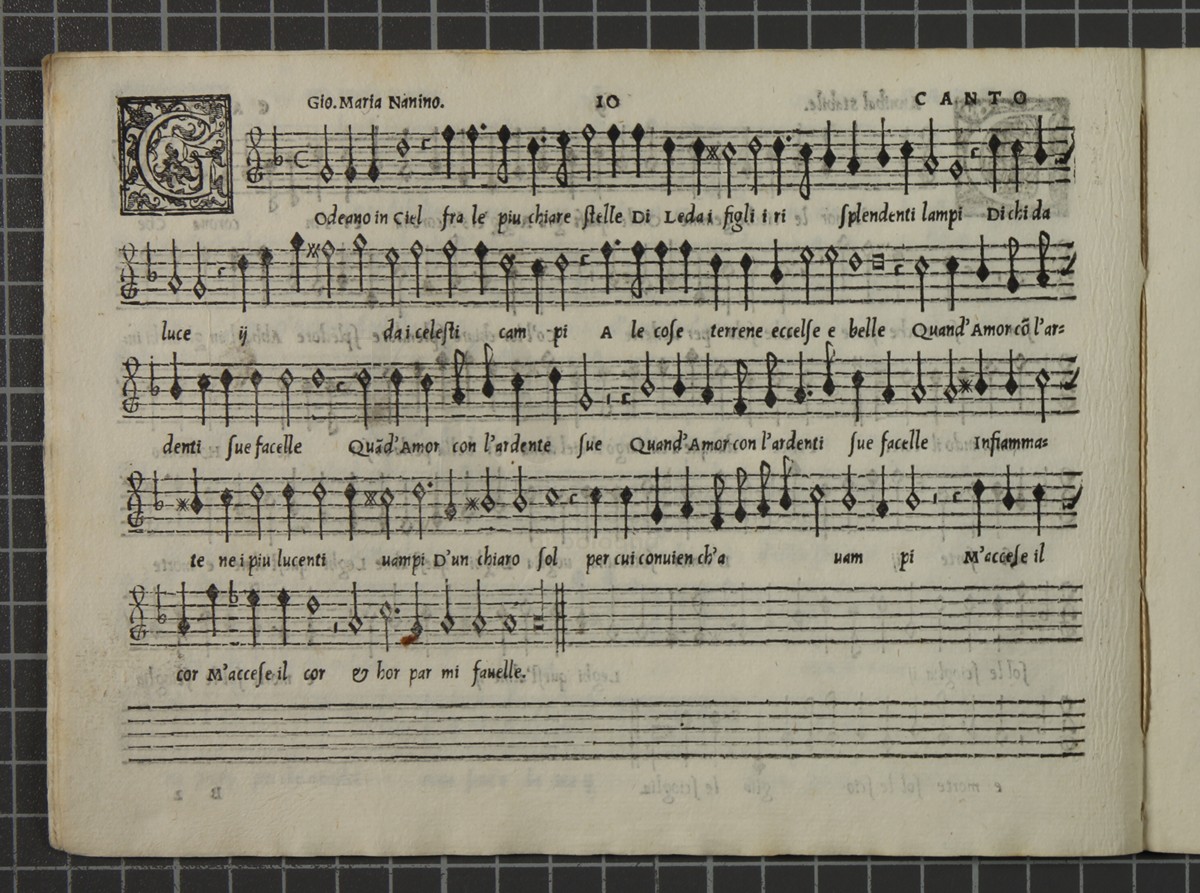 Gio. Maria Nanino. 10 CANTO
GOdeano in Ciel fra le piu chiare stelle Di Leda i figli i ri splendenti lampi Di chi da
luce ij da i celesti cam pi A le cose terrene eccelse e belle Quand'Amor cõ l'ar=
denti sue facelle Quãd'Amor con l'ardente sue Quand'Amor con l'ardenti sue facelle Infiamma=
te ne i piu lucenti uampi D'un chiaro sol per cui conuien ch'a uam pi M'accese il
cor M'accese il cor & hor par mi fauelle.